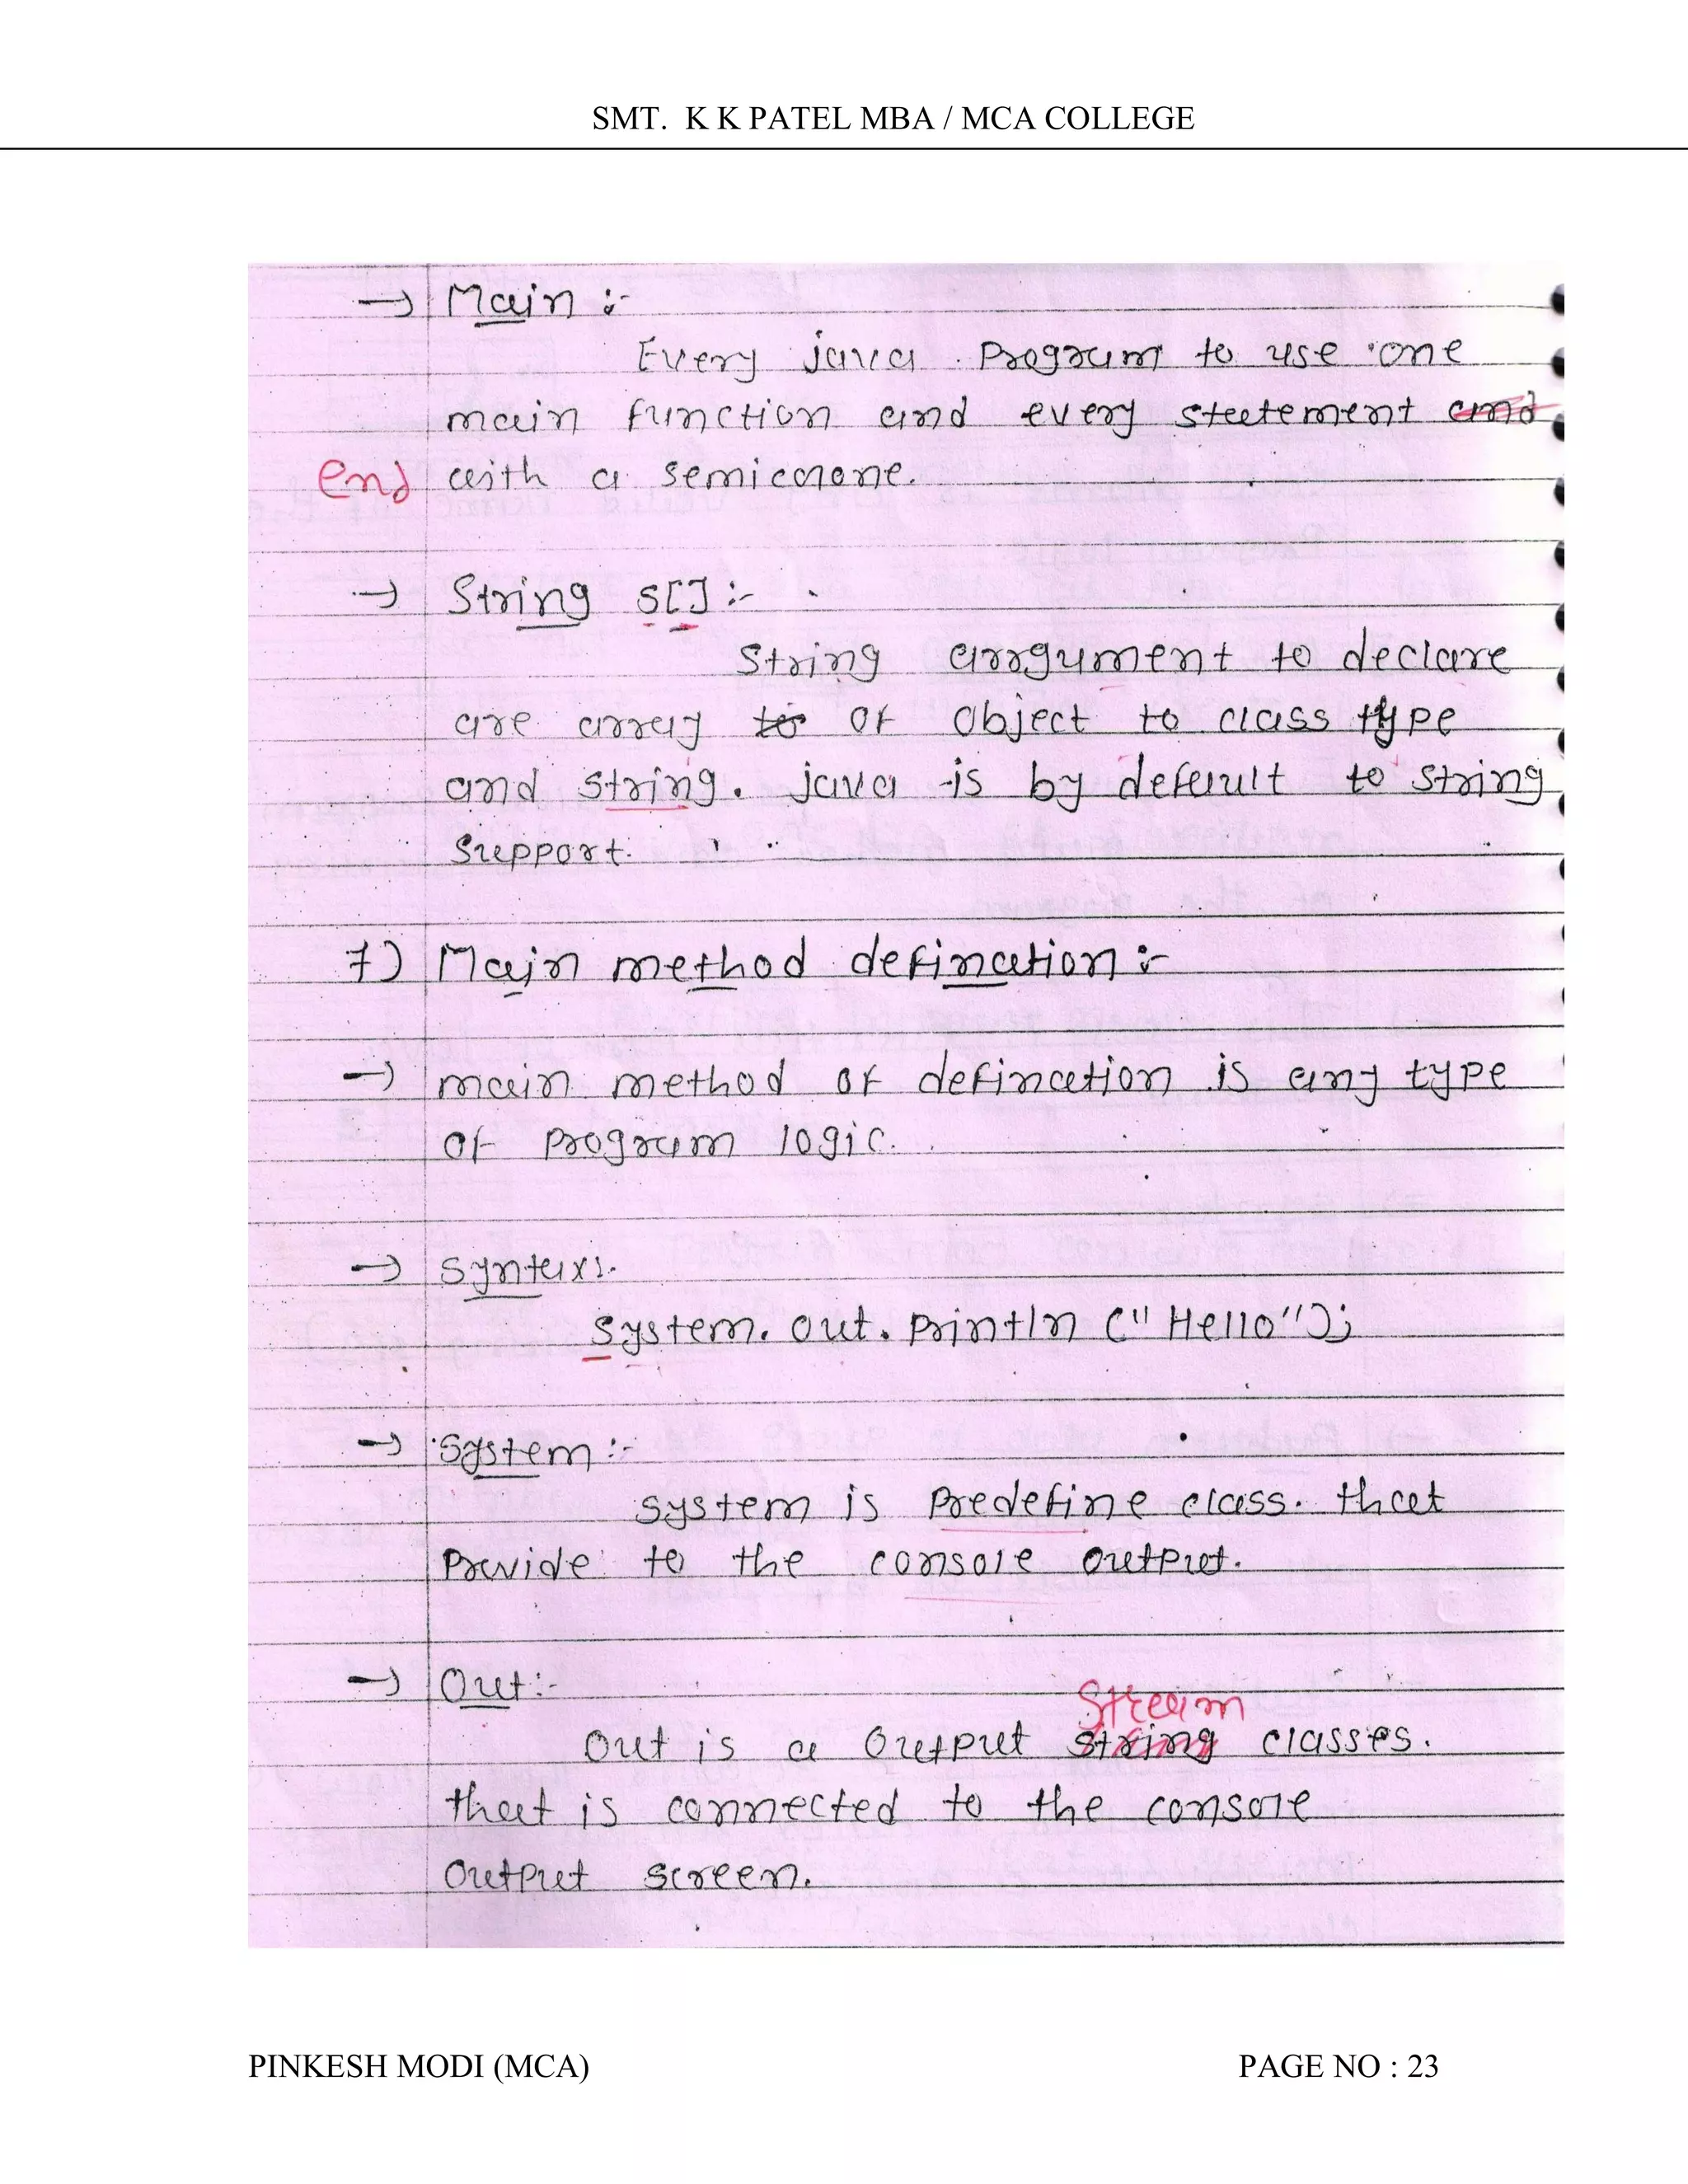 SMT. K K PATEL MBA / MCA COLLEGE
→ Main :-
Every java Program to use one
main function and every statement and
end with a semicolone.
→ String s[] :-
String arrgument to declare
are array to of object to class type
and string. java is by default to string
support.
7) Main method defination :-
→ main method of defination is any type
of program logic.
→ syntax :-
System. out. println ("Hello");
→ System :-
System is Predefine class. that
Provide to the console output.
→ Out :-
Stream
Out is a Output String classes.
that is connected to the console
Output screen.
PINKESH MODI (MCA) PAGE NO : 23